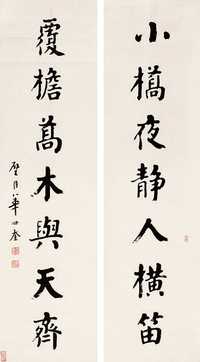 小橋夜静人橫笛
覆檐高木與天齊
璧臣華世奎